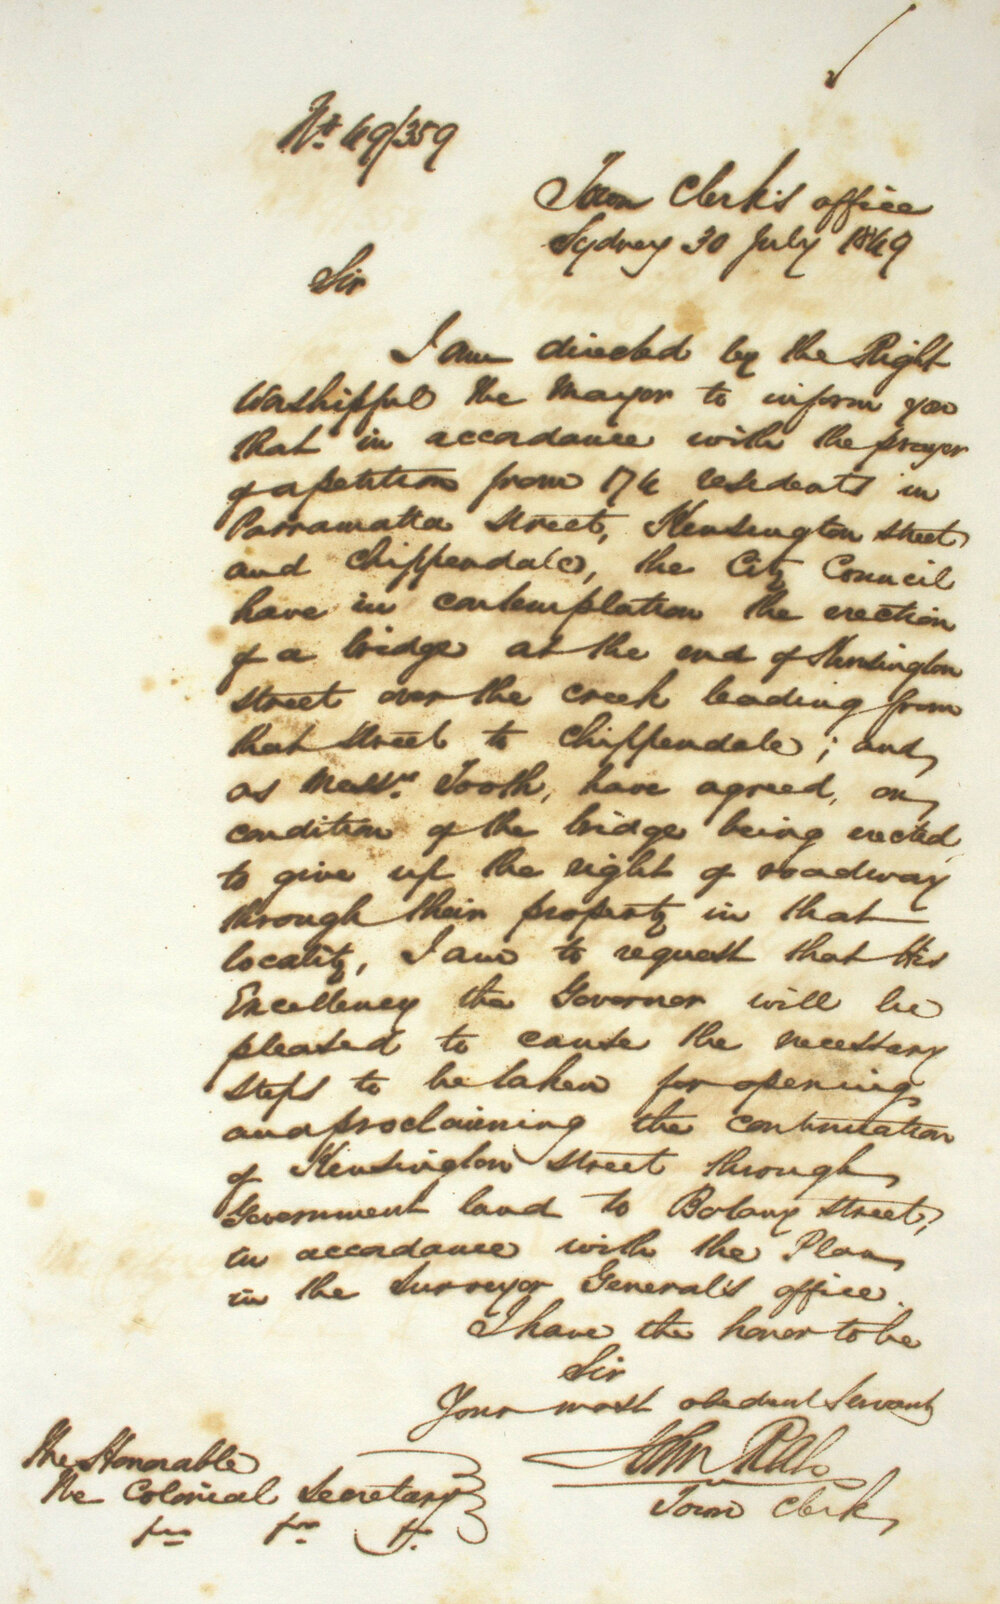 No. 69/359
Town Clerk's office
Sydney 30 July 1869
Sir
I am directed by the Right
Worshipful the Mayor to inform you
that in accordance with the prayer
of a petition from 174 residents in
Parramatta Street, Kensington street
and Chippendale, the City Council
have in contemplation the erection
of a bridge at the end of Kensington
street over the creek leading from
that street to Chippendale; and,
as Messrs. Tooth, have agreed, on
condition of the bridge being erected,
to give up the right of roadway
through their property in that
locality, I am to request that His
Excellency the Governor will be
pleased to cause the necessary
steps to be taken for opening
and proclaiming the continuation
of Kensington Street through
Government land to Botany Street,
in accordance with the Plan
in the Surveyor General's office.
I have the honor to be
Sir
Your most obedient Servant
John Rae
Town Clerk
The Honorable
The Colonial Secretary